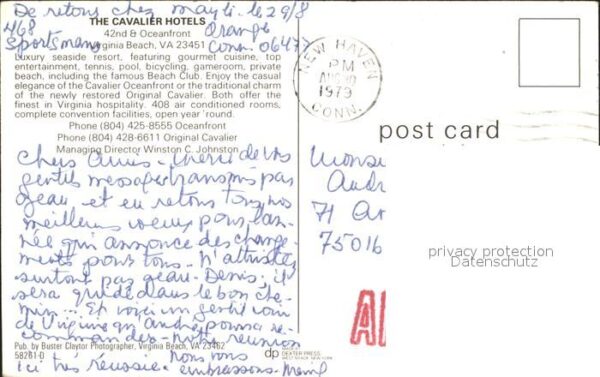 De retour chez Mayli. le 29/8
468
Sportsman
Orange
Conn. 06477
THE CAVALIER HOTELS
42nd & Oceanfront
Virginia Beach, VA 23451
Luxury seaside resort, featuring gourmet cuisine, top
entertainment, tennis, pool, bicycling, gameroom, private
beach, including the famous Beach Club. Enjoy the casual
elegance of the Cavalier Oceanfront or the traditional charm
of the newly restored Original Cavalier. Both offer the
finest in Virginia hospitality. 408 air conditioned rooms,
complete convention facilities, open year 'round.
Phone (804) 425-8555 Oceanfront
Phone (804) 428-6611 Original Cavalier
Managing Director Winston C. Johnston
Chers Amis - merci de vos
gentils messages transmis pas
Jean et en retour tous nos
meilleurs voeux pour l'an-
née qui annonce des change-
ments pour tous. N'attristez
surtout pas Jean-Denis, il
sera guidé dans le bon che-
min... Et voici un gentil coin
de Virginie qu'André pourra re-
commander - notre réunion
ici très réussie. Nous vous
embrassons -
Pub. by Buster Claytor Photographer, Virginia Beach, VA 23462
58261-D
dp DEXTER PRESS
WEST NYACK, NEW YORK
NEW HAVEN
PM
AUG
1973
CONN.
post card
Monsi
Andr
71 A
75016
privacy protection
Datenschutz